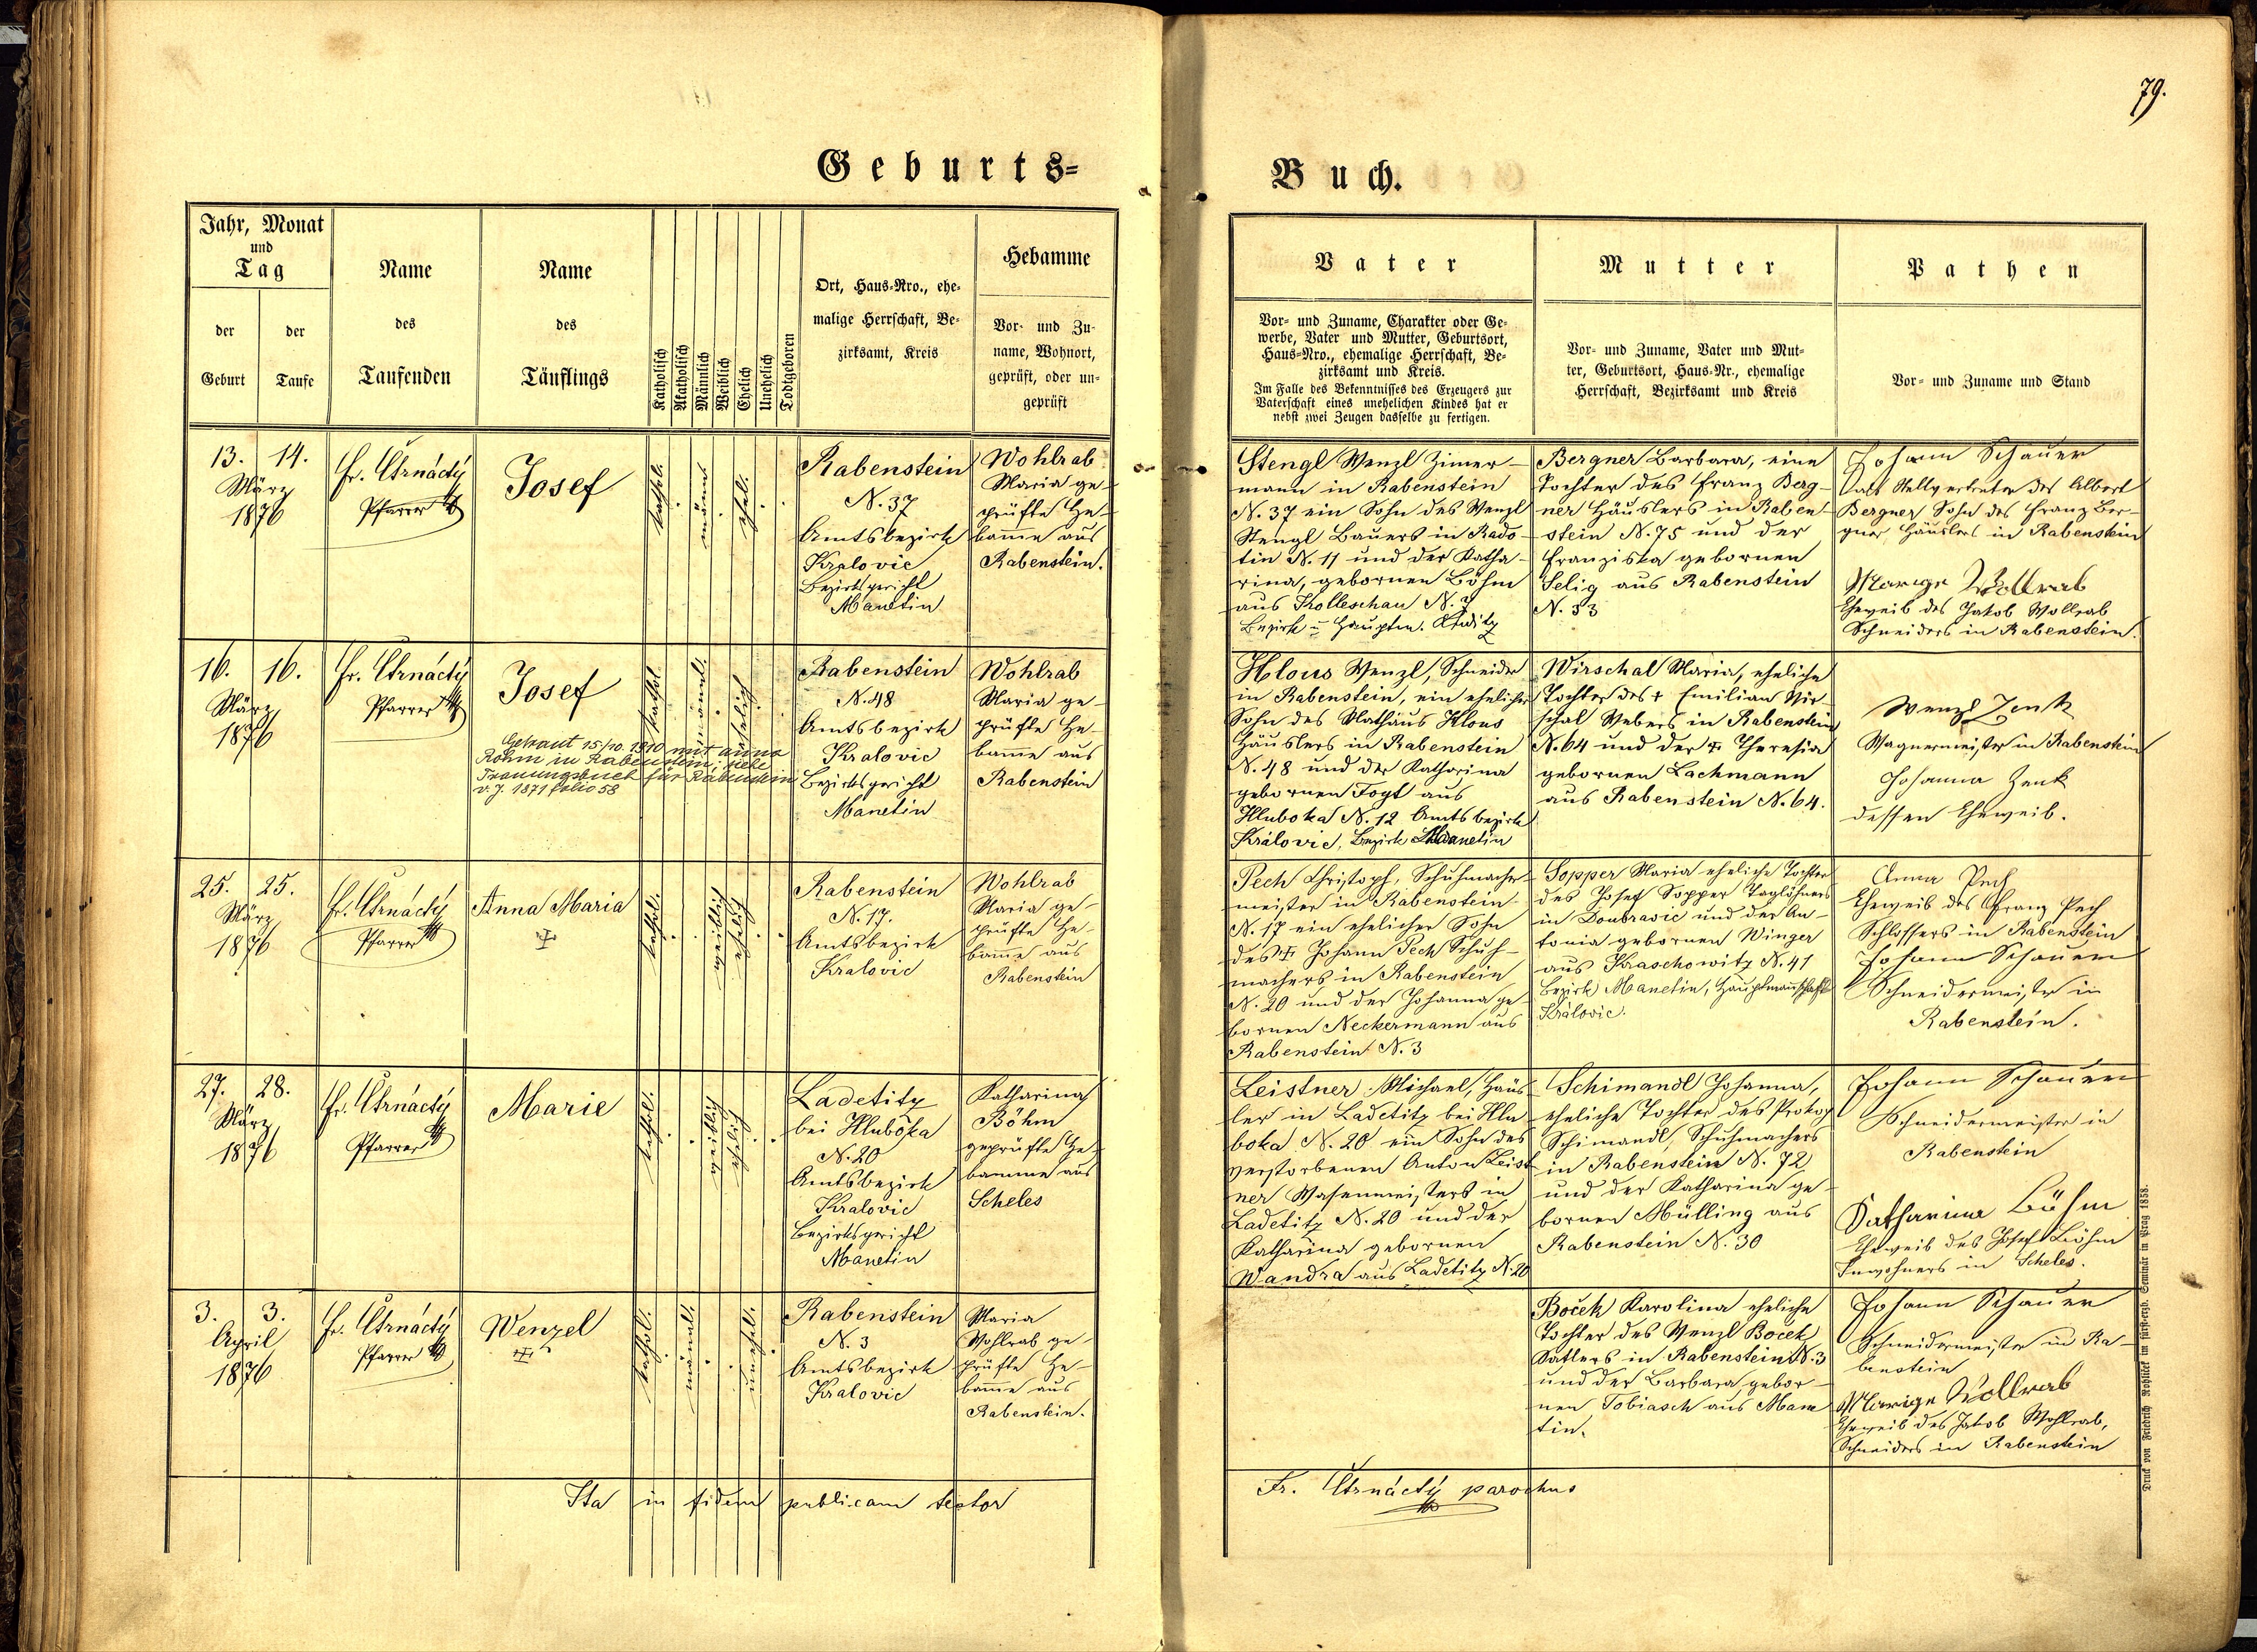 79.
Geburts=
Buch.
Jahr, Monat
und
Tag
der
Geburt
der
Taufe
Name
des
Taufenden
Name
des
Täuflings
Katholisch
Akatholisch
Männlich
Weiblich
Ehelich
Unehelich
Todtgeboren
Ort, Haus-Nro., ehe-
malige Herrschaft, Be-
zirksamt, Kreis
Hebamme
Vor- und Zu-
name, Wohnort,
geprüft, oder un-
geprüft
Vater
Vor- und Zuname, Charakter oder Ge-
werbe, Vater und Mutter, Geburtsort,
Haus-Nro., ehemalige Herrschaft, Be-
zirksamt und Kreis.
Im Falle des Bekenntnisses des Erzeugers zur
Vaterschaft eines unehelichen Kindes hat er
nebst zwei Zeugen dasselbe zu fertigen.
Mutter
Vor- und Zuname, Vater und Mut-
ter, Geburtsort, Haus-Nr., ehemalige
Herrschaft, Bezirksamt und Kreis
Pathen
Vor- und Zuname und Stand
13. 14.
März
1876
Fr. Čtrnáctý
Pfarrer
Josef
kathol.
männl.
ehel.
Rabenstein
N. 37
Amtsbezirk
Kralovic
Bezirksgericht
Manetin
Wohlrab
Maria ge-
prüfte He-
bamme aus
Rabenstein.
Stengl Wenzl Zimer-
mann in Rabenstein
N. 37 ein Sohn des Wenzl
Stengl Bauers in Rado-
tin N. 11 und der Katha-
rina, gebornen Böhm
aus Kolleschau N. 7
Bergner Barbara, eine
Tochter des Franz Berg-
ner Häuslers in Raben-
stein N. 75 und der
Franziska gebornen
Selig aus Rabenstein
N. 53
Johann Schauer
als Stellvertreter des Albert
Bergner Sohn des Franz Ber-
gner Häuslers in Rabenstein
Marige Wollrab
Eheweib des Jakob Wollrab
Schneiders in Rabenstein.
16. 16.
März
1876
Fr. Čtrnáctý
Pfarrer
Josef
Getraut 15/10. 1910 mit Anna
Röhm in Rabenstein; siehe
Trauungsbuch für Rabenstein
v. J. 1871 folio 58
kathol.
männl.
ehelich
Rabenstein
N. 48
Amtsbezirk
Kralovic
Bezirksgericht
Manetin
Wohlrab
Maria ge-
prüfte He-
bamme aus
Rabenstein
Hlous Wenzl, Schneider
in Rabenstein, ein ehelicher
Sohn des Mathäus Hlous
Häuslers in Rabenstein
N. 48 und der Katharina
gebornen Fogt aus
Hluboka N. 12 Amtsbezirk
Královic, Bezirk Manetin
Wirschal Maria, eheliche
Tochter des + Emilian Wir-
schal Webers in Rabenstein
N. 64 und der + Theresia
gebornen Lachmann
aus Rabenstein N. 64.
Wenzl Zenk
Wagnermeister in Rabenstein
Johanna Zenk
dessen Eheweib.
25. 25.
März
1876
Fr. Čtrnáctý
Pfarrer
Anna Maria
+
kathol.
weiblich
eheliche
Rabenstein
N. 17.
Amtsbezirk
Kralovic
Wohlrab
Maria ge-
prüfte He-
bamme aus
Rabenstein
Pech Christoph, Schuhmacher-
meister in Rabenstein
N. 17 ein ehelicher Sohn
des + Johann Pech Schuh-
machers in Rabenstein
N. 20 und der Johanna ge-
bornen Neckermann aus
Rabenstein N. 3
Sopper Maria eheliche Tochter
des Josef Sopper Taglöhners
in Doubravic und der An-
tonia gebornen Winger
aus Kraschowitz N. 41
Bezirk Manetin, Hauptmannschaft
Královic.
Anna Pech
Eheweib des Franz Pech
Schlossers in Rabenstein
Johann Schauer
Schneidermeister in
Rabenstein.
27. 28.
März
1876
Fr. Čtrnáctý
Pfarrer
Marie
kathol.
weiblich
eheliche
Ladetitz
bei Hluboka
N. 20
Amtsbezirk
Kralovic
Bezirksgericht
Manetin
Katharina
Böhm
geprüfte He-
bamme aus
Scheles
Leistner Michael, Häus-
ler in Ladetitz bei Hlu-
boka N. 20 ein Sohn des
verstorbenen Anton Leist-
ner Wasenmeisters in
Ladetitz N. 20 und der
Katharina gebornen
Wandra aus Ladetitz N. 20
Schimandl Johanna,
eheliche Tochter des Prokop
Schimandl, Schuhmachers
in Rabenstein N. 72
und der Katharina ge-
bornen Mülling aus
Rabenstein N. 30
Johann Schauer
Schneidermeister in
Rabenstein
Katharina Böhm
Eheweib des Josef Böhm
Inwohners in Scheles.
3. 3.
April
1876
Fr. Čtrnáctý
Pfarrer
Wenzel
+
kathol.
männl.
unehel.
Rabenstein
N. 3
Amtsbezirk
Kralovic
Maria
Wohlrab ge-
prüfte He-
bamme aus
Rabenstein.
Boček Karolina eheliche
Tochter des Wenzl Boček
Satlers in Rabenstein N. 3
und der Barbara gebor-
nen Tobiasch aus Mane-
tin.
Johann Schauer
Schneidermeister in Ra-
benstein
Marige Wollrab
Eheweib des Jakob Wohlrab,
Schneiders in Rabenstein
Ita in fidem publicam testor
Fr. Čtrnáctý parochus
Druck von Friedrich Rohliček im fürst-erzb. Seminär in Prag 1858.